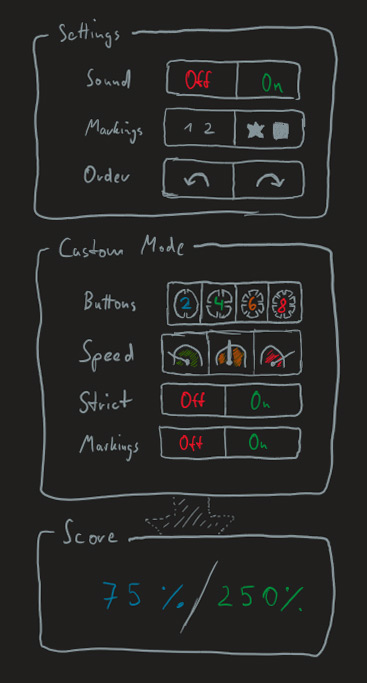 Settings
Sound Off On
Markings 1 2
Order
Custom Mode
Buttons 2 4 6 8
Speed
Strict Off On
Markings Off On
Score
75% / 250%